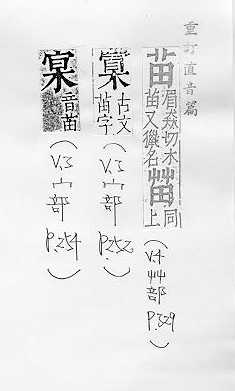 重訂直音篇
苗 眉猋切禾
苗又獵名 𤲸 同
上
(V.4 艸部 P.329)
古文
苗字
(V.3 宀部 P.252)
音苗
(V.3 宀部 P.254)